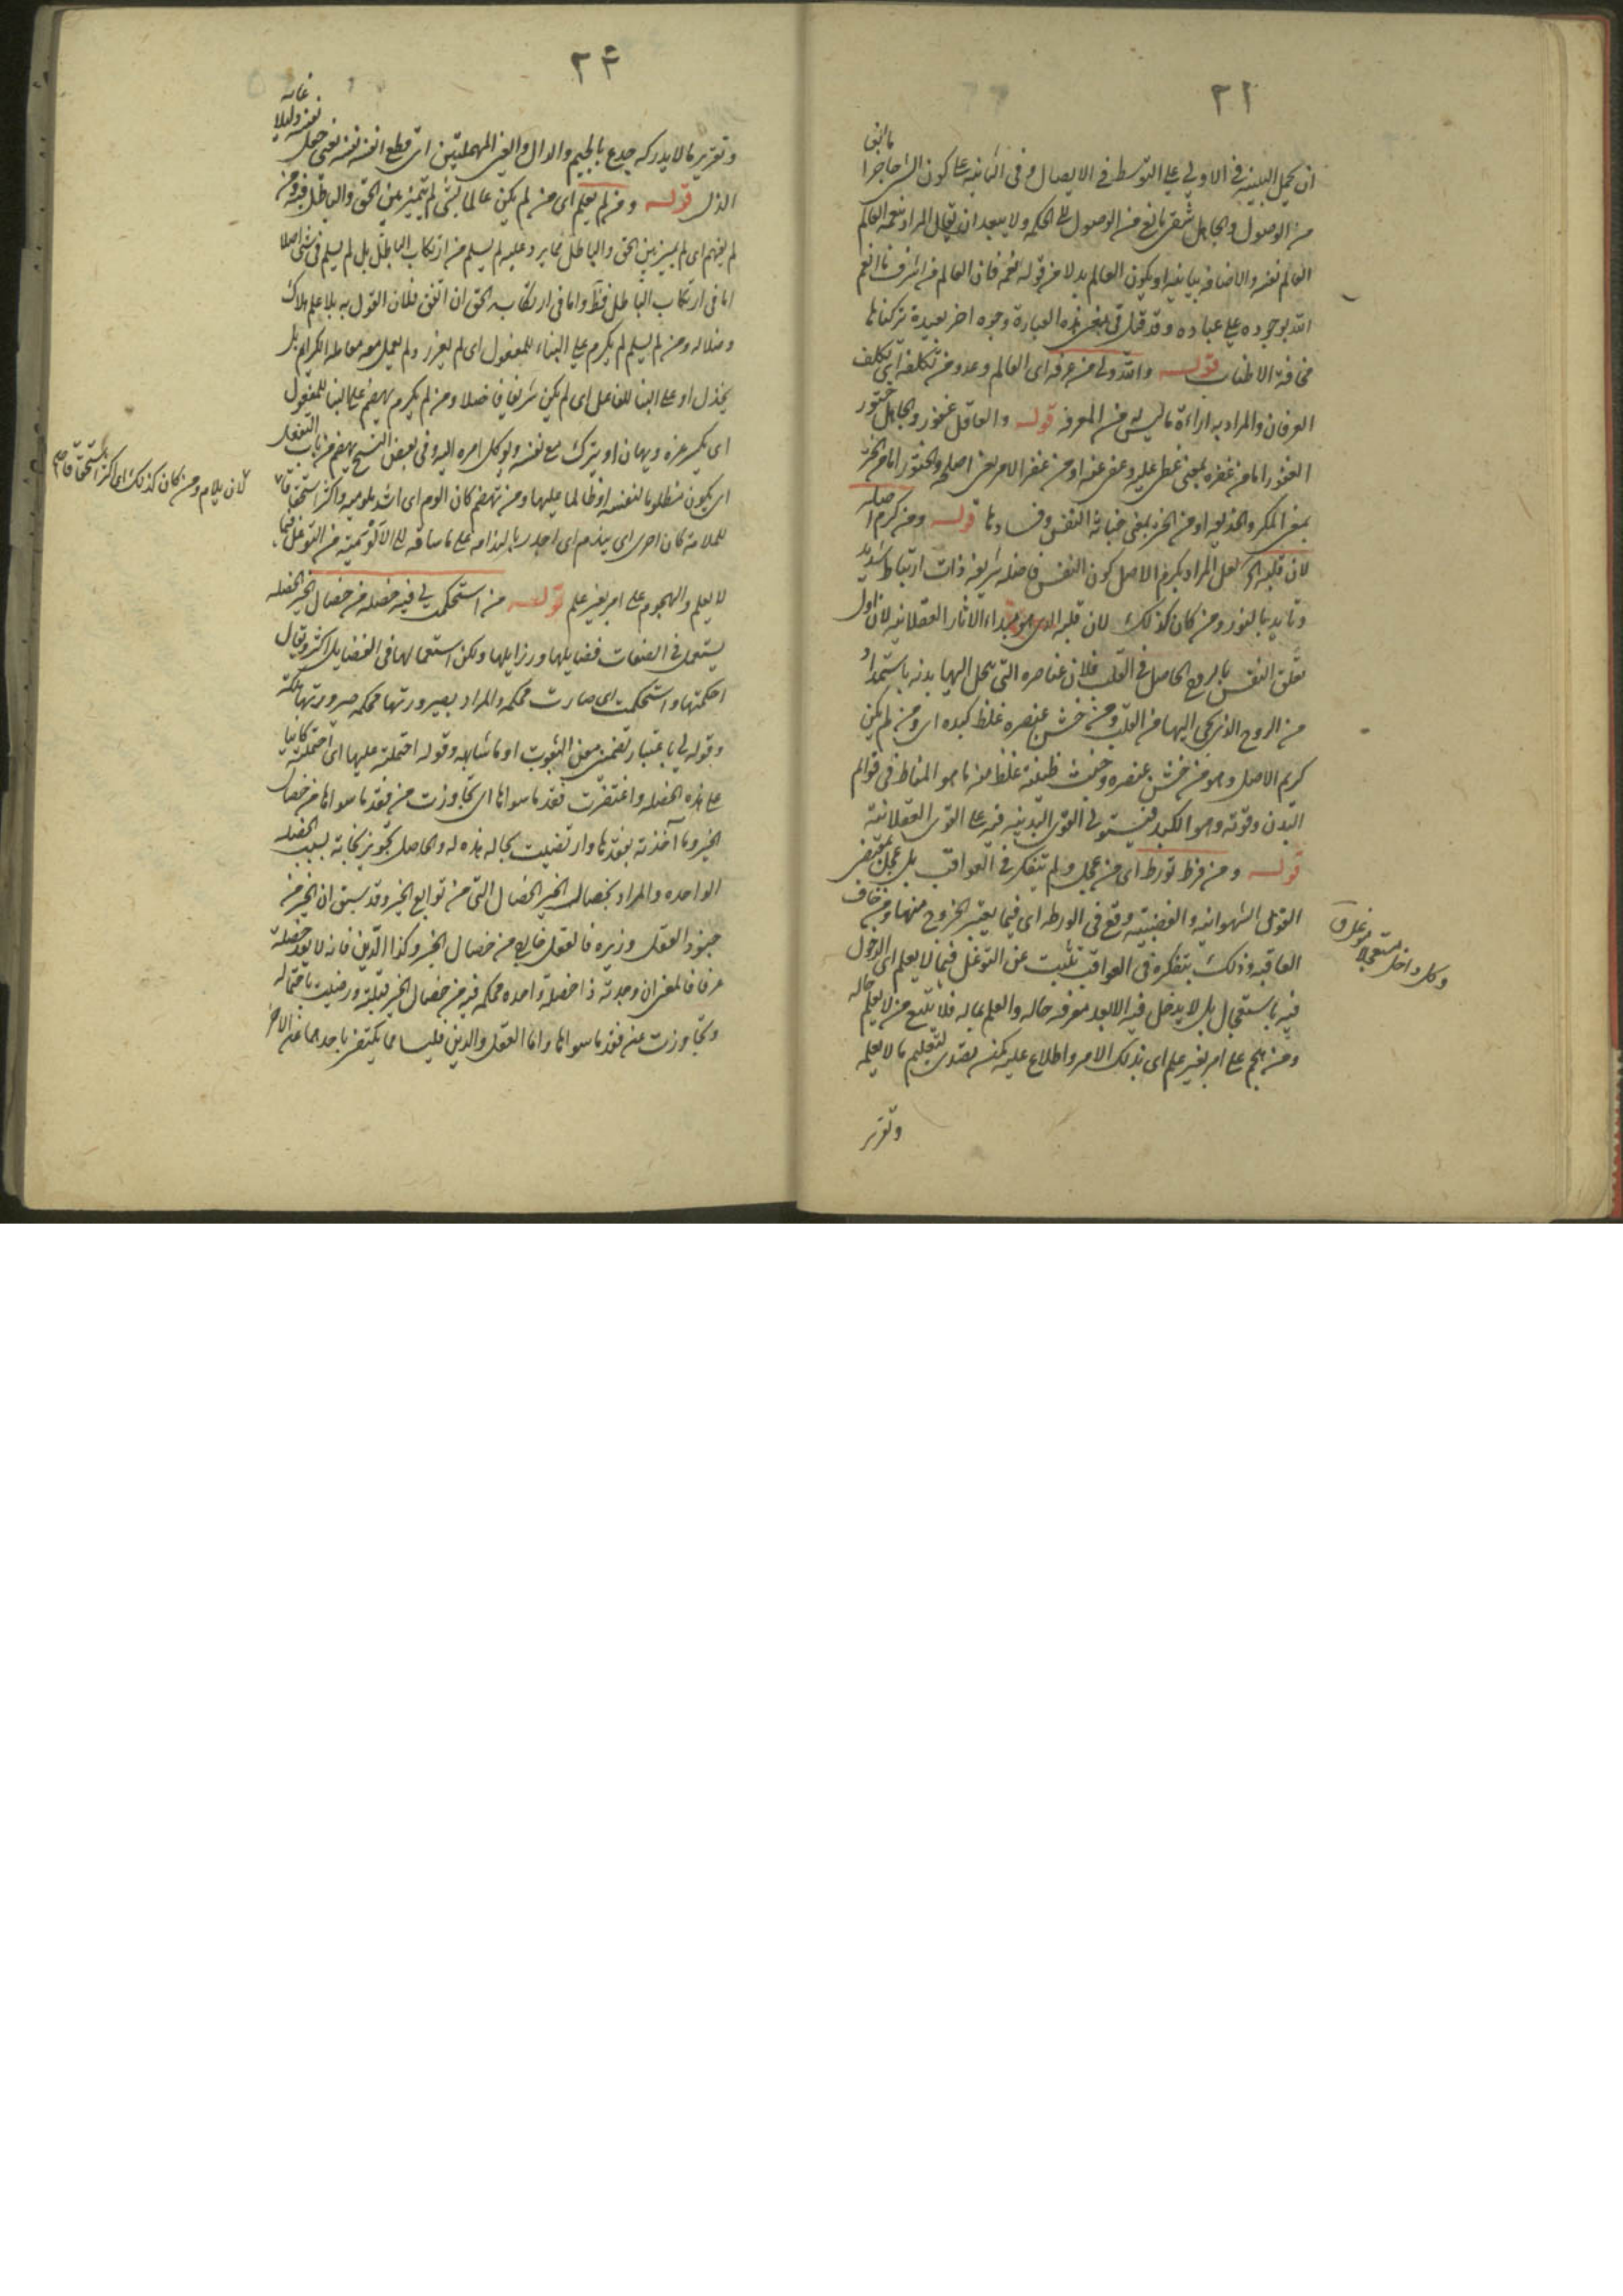 ٢١
ان يحمل البينية في الاولي علي التوسط في الايصال و في الثانية علي كون الشي حاجزا
من الوصول والجاهل شقي مانع من الوصول الي الحكمة ولا يبعد ان يقال المراد بنعمة العالم
العالم نفسه والاضافة بيانية او يكون العالم بدلا من قوله نعمة فان العالم من اشرف ما انعم
الله بوجوده علي عباده وقد قيل في معني هذه العبارة وجوه اخر بعيدة تركناها
مخافة الاطناب قوله والله ولي من عرفه اي العالم وعدو من تكلفه اي تكلف
العرفان والمراد به اراءة ما ليس من المعرفة قوله والعاقل غفور والجاهل ختور
الغفور اما من غفره بمعني غطي عليه وعفي عنه او من غفر الامر بمعني اصلحه والختور اما من الختر
بمعني المكر والخديعة او من الختر بمعني خباثة النفس وفسادها قوله ومن كرم اصله
لان قلبه الخ لعل المراد بكرم الاصل كون النفس فاضلة شريفة ذات ارتباط شديد
وتأيد بالنور ومن كان كذلك لان قلبه الذي هو مبداء الاثار العقلانية لان اول
تعلق النفس بالروح الحاصل في القلب فلان عناصره التي يحل اليها بدنه باستمداد
من الروح الذي يجي اليها من القلب ومن خشن عنصره غلظ كبده اي ومن لم يكن
كريم الاصل وهو من خشن عنصره وخبث طينته غلظ منه ما هو المناط في قوائم
البدن وقوته وهو الكبد فيستولي القوي البدنية فيه علي القوي العقلانية
قوله ومن فرط تورط اي من عجل ولم يتفكر في العواقب بل عمل بمقتضي
القوي الشهوانية والغضبية وقع في الورطة اي فيما يعسر الخروج منها ومن خاف
العاقبة وذلك بتفكره في العواقب تثبت عن التوغل فيما لا يعلم اي الدخول
فيه باستعجال بل لا يدخل فيه الا بعد معرفة حاله والعلم بماله فلا يتبع من لا يعلم حاله
ومن هجم علي امر بغير علم اي بذلك الامر واطلاع عليه كمن تصدي لتعليم ما لا يعلمه
وتقرير
وكل داخل مستعجلا
وتقرير ما لا يدركه جدع بالجيم والدال والعين المهملتين اي قطع انف نفسه يعني جعل
نفسه ذليلا
غاية
الذل قوله ومن لم يعلم اي من لم يكن عالما بشي لم يتميز بين الحق والباطل فيه ومن
لم يفهم اي لم يميز بين الحق والباطل مما يرد عليه لم يسلم من ارتكاب الباطل بل لم يسلم في شي اصلا
اما في ارتكاب الباطل فظ واما في ارتكابه الحق ان اتفق فلان القول به بلا علم هلاك
وضلاله ومن لم يسلم لم يكرم علي البناء للمفعول اي لم يعزز ولم يعمل معه معاملة الكرام بل
يخذل او علي البنا للفاعل اي لم يكن شريفا فاضلا ومن لم يكرم يهضم علي البنا للمفعول
اي يكسر عزه ويهان او يترك مع نفسه ويوكل امره اليه وفي بعض النسخ تهضم من باب التفعل
اي يكون مظلوما لنفسه او ظالما عليها ومن تهضم كان الوم اي اشد ملومية واكثر استحقاقا
للملامة كان احري اي يندم اي اجدر بالندامة علي ما ساقه الي
لا يعلم والهجوم علي امر بغير علم قوله من استحكمت لي فيه خصله من خصال الخير الخصله
يستعمل في الصفات فضايلها ورذايلها ولكن استعمالها في الفضايل اكثر ويقال
احكمتها واستحكمت اي صارت محكمة والمراد بصيرورتها محكمة صيرورتها ملكة
وقوله لي باعتبار تضمن معني الثبوت او ما شابهه وقوله احتملته عليها اي احتملته كائنا
علي هذه الخصلة واغتفرت فقد ما سواها اي تجاوزت من فقد ما سواها من خصال
الخير وما آخذته بفقدها وارتضيت بحاله هذه له والحاصل تجويز نجاته بسبب الخصله
الواحده والمراد بخصال الخير الخصال التي من توابع الخير وقد سبق ان الخير من
جنود العقل وزيره فالعقل خارج من خصال الخير وكذا الدين فانه لا يعد خصلة
عرفا فالمعني ان وجدته ذا خصلة واحده محكمة فيه من خصال الخير قبلته ورضيت باحتماله
وتجاوزت عن فقد ما سواها واما العقل والدين فليسا مما يكتفي باحدهما عن الاخر
لان يلام ومن كان كذلك اي اكثر استحقاقا